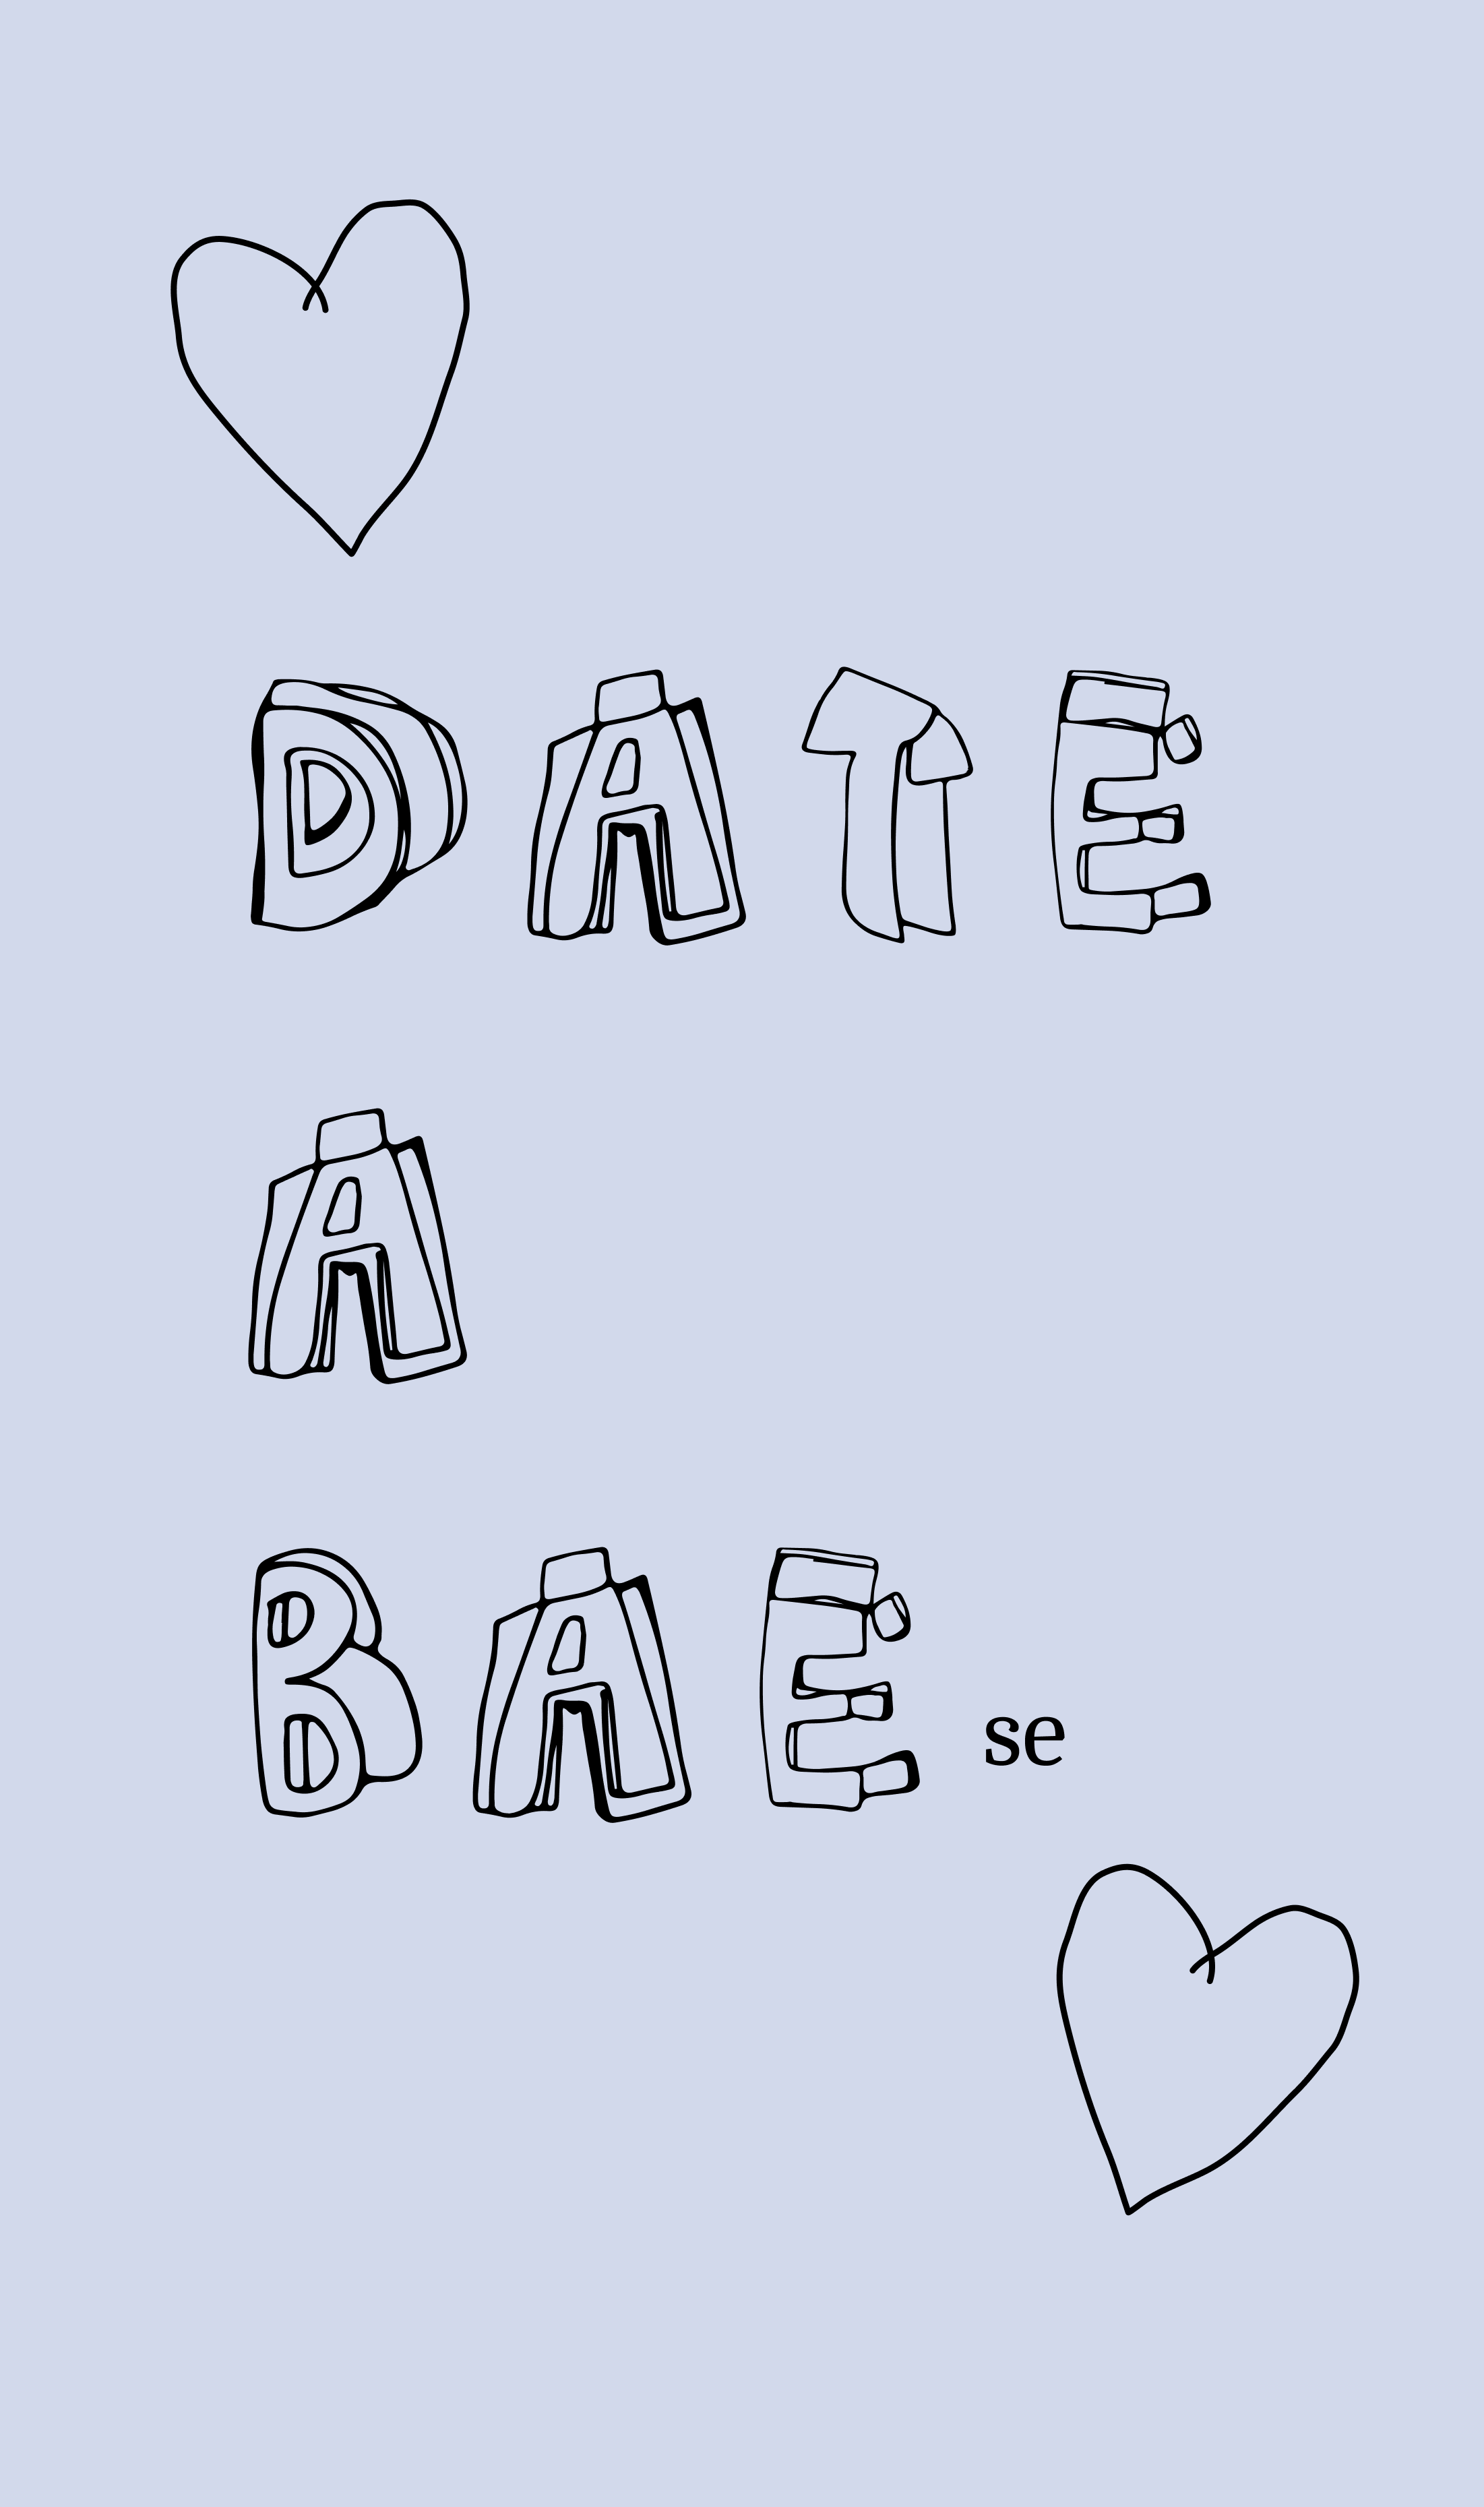 DATE
A
BAE se